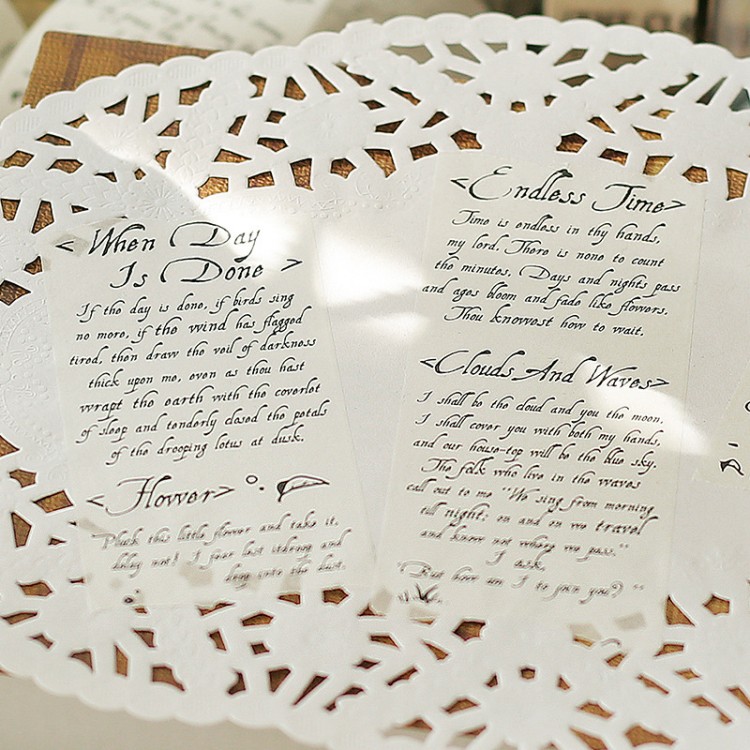 <When Day
Is Done>
If the day is done, if birds sing
no more, if the wind has flagged
tired, then draw the veil of darkness
thick upon me, even as thou hast
wrapt the earth with the coverlet
of sleep and tenderly closed the petals
of the drooping lotus at dusk.
<Flower>
Pluck this little flower and take it,
delay not! I fear lest it droop and
drop into the dust.
<Endless Time>
Time is endless in thy hands,
my lord. There is none to count
the minutes. Days and nights pass
and ages bloom and fade like flowers.
Thou knowest how to wait.
<Clouds And Waves>
I shall be the cloud and you the moon.
I shall cover you with both my hands,
and our house-top will be the blue sky.
The folk who live in the waves
call out to me "We sing from morning
till night; on and on we travel
and know not where we pass."
I ask,
"But how am I to join you?"